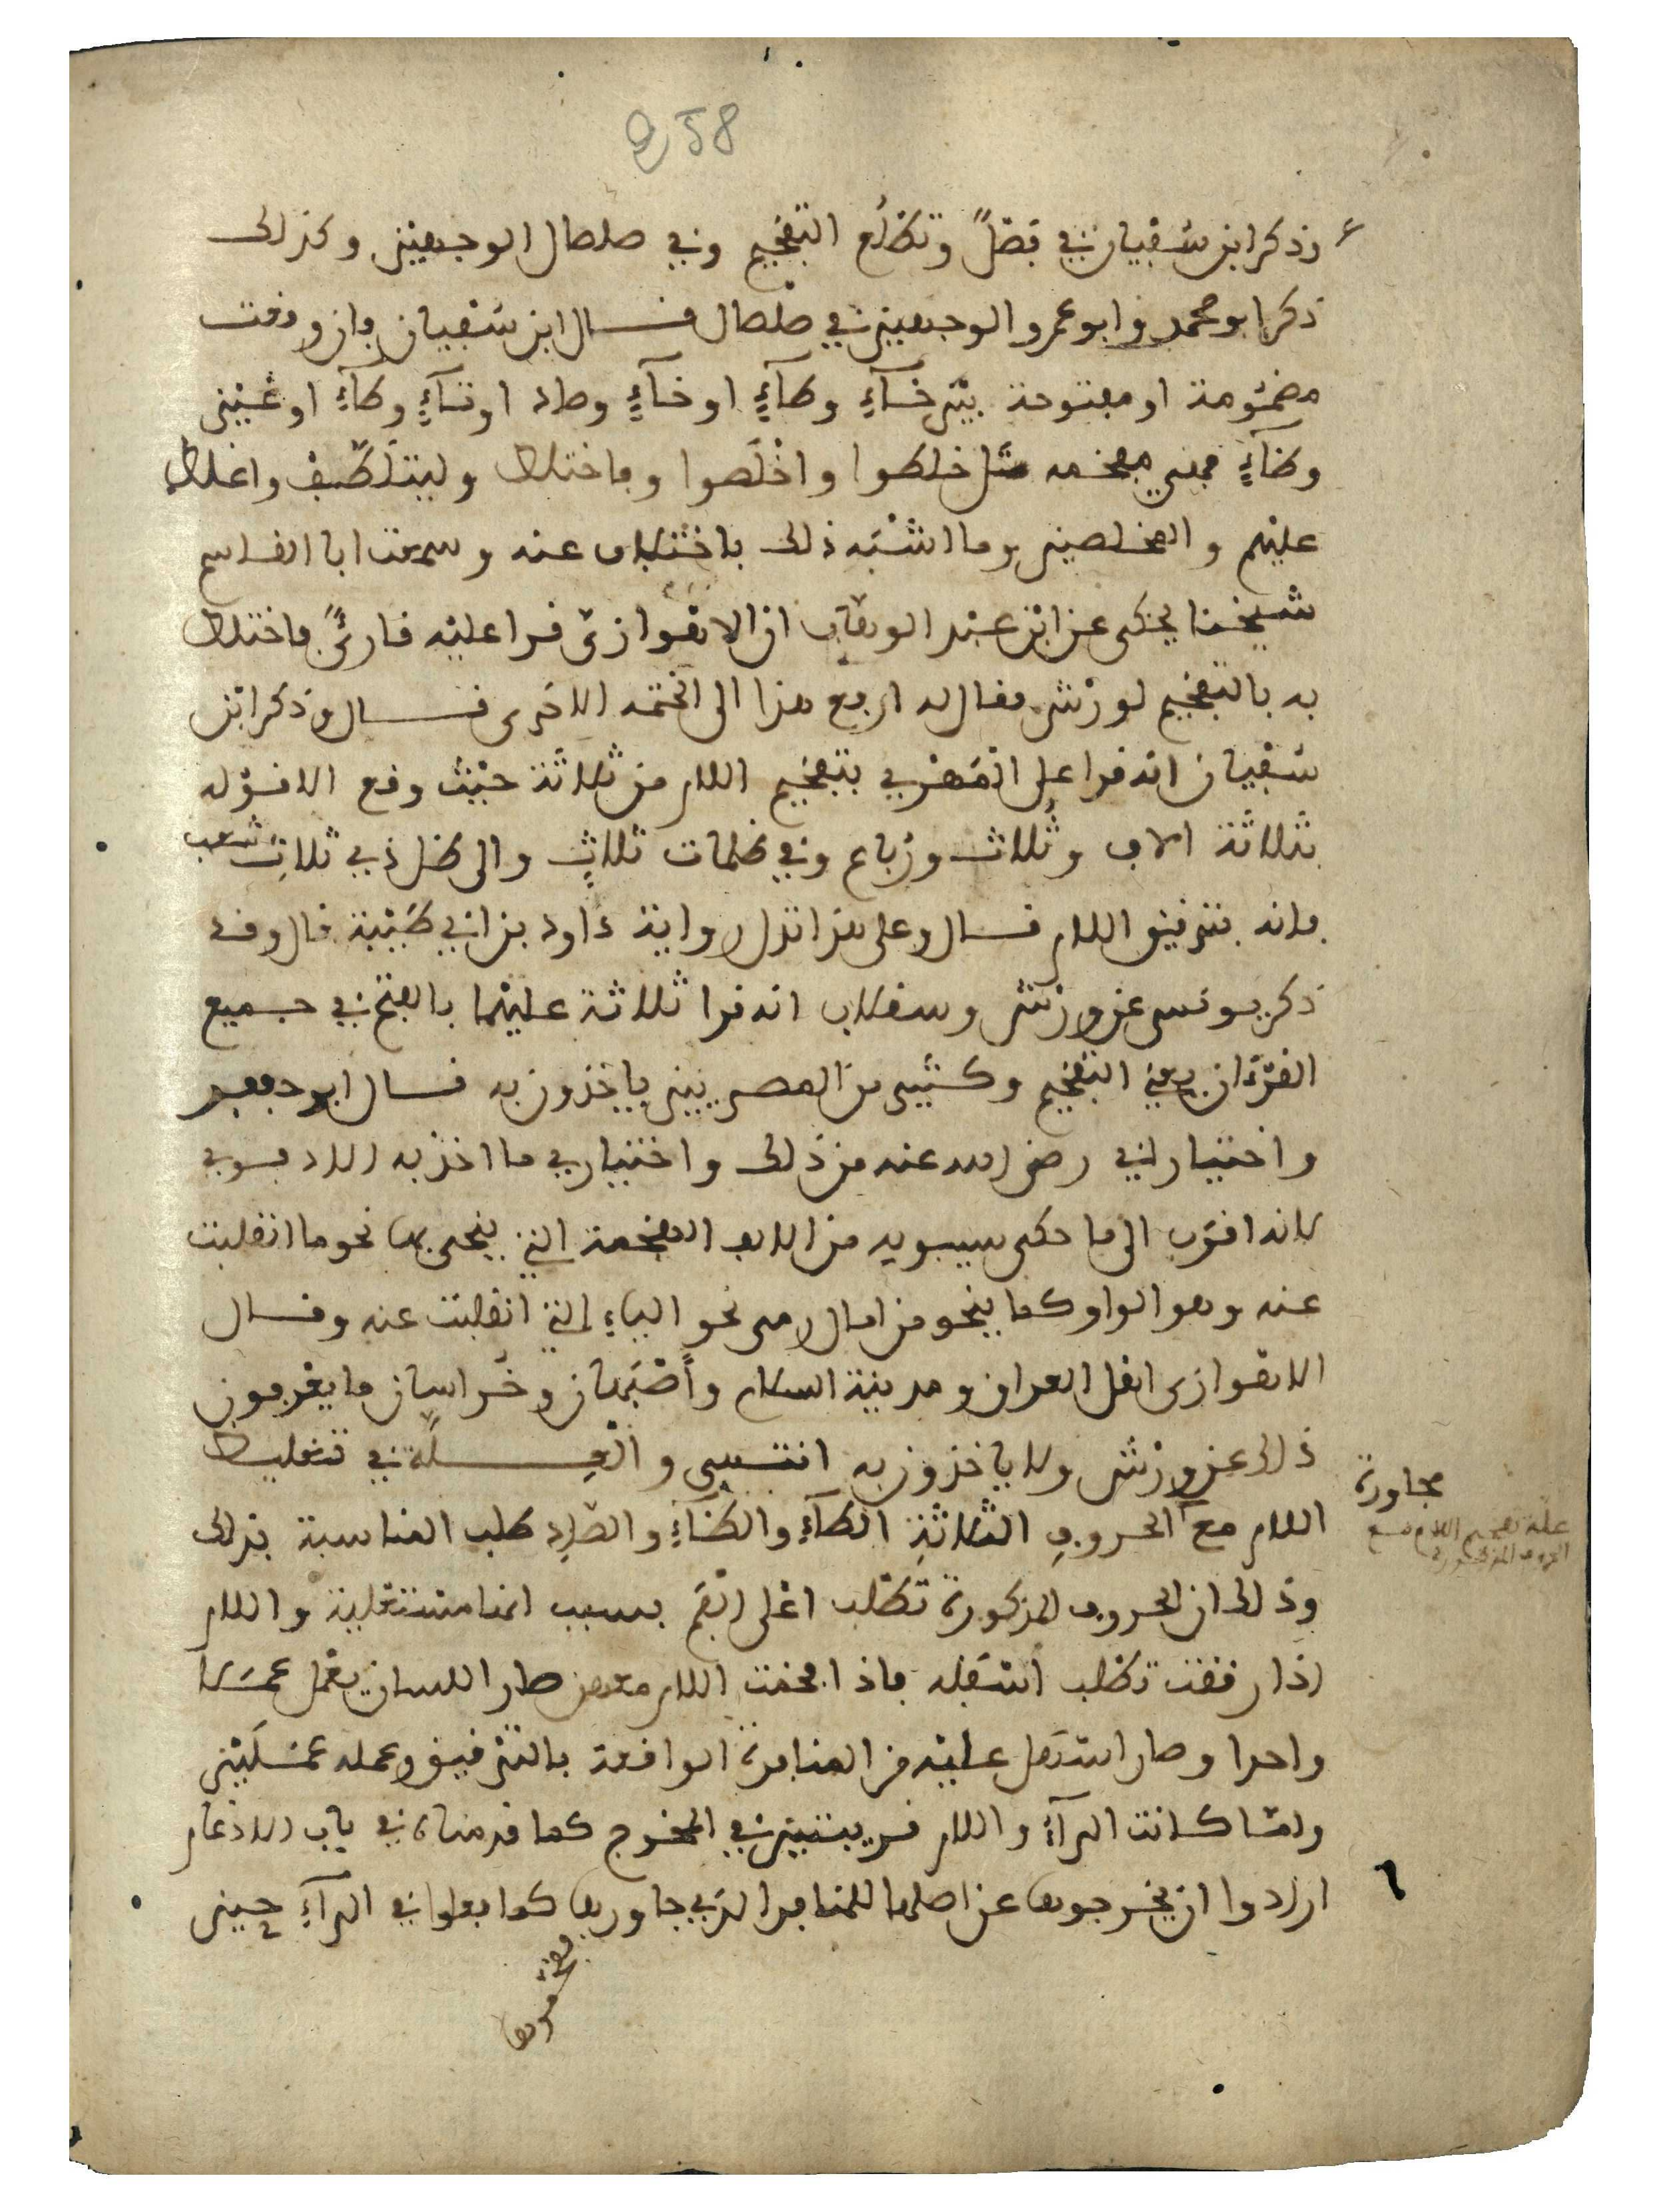 258
وذكر ابن سفيان في فصلاً وتطلع التفخيم وفي صلصال الوجهين وكذلك
ذكر ابو محمد وابو عمرو الوجهين في صلصال فــال ابن سفيان وان وقعت
مضمومة او مفتوحة بين خآءٍ وطآءٍ او خآءٍ وصاد او تآءٍ وطآءٍ او غين
وظآءٍ فهي مفخمه مثل خلطوا واخلصوا وفاختلط وليتلطف واغلظ
عليهم والمخلصين وما اشبه ذلك باختلاف عنه وسمعت ابا القاسم
شيخنا يحكى عن ابن عبد الوهاب ان الاهوازي قرا عليه قارئٌ فاختلط
به بالتفخيم لورش فقال له ارفع هذا الى الختمه الاخرى قــال وذكر ابن
سفيان انه قرا على المهري بتفخيم اللام من ثلاثة حيث وقع الا قوله
بثلاثة الاف وثُلاث ورُباع وفي ظلمات ثلاثٍ والى ظل ذي ثلاث شعب
فانه بترقيق اللام قــال وعلى هذا تدل رواية داود بن ابي طيبة قال وقد
ذكر يونس عن ورش وسقلاب انه قرا ثلاثة عليهما بالفتح في جميع
القرءان يعني التفخيم وكثير من المصريين ياخذون به قــال ابو جعفر
واختيار ابي رضي الله عنه من ذلك واختياري ما اخذ به الادفوي
لانه اقرب الى ما حكى سيبويه من الالف المفخمة التي ينحى بها نحو ما انقلبت
عنه وهو الواو كما ينحو من امال رمى نحو الياءِ التي انقلبت عنه وقــال
الاهوازى اهل العراق ومدينة السلام وأصبهان وخراسان ما يعرفون
ذلك عن ورش ولا ياخذون به انتهى والعِـــلّة في تغليظ
اللام مع الحروفِ الثلاثةِ الطآءِ والظآءِ والصادِ طلب المناسبة بذلك
مجاورة
علة تفخيم اللام مع
الحروف المذكورة
وذلك ان الحروف المذكورة تطلب اعلى الفم بسبب انها مستعلية واللام
اذا رققت تطلب اسفله فاذا فخمت اللام معهن صار اللسان يعمل عمــلا
واحدا وصار اسهل عليه من المنافرة الواقعة بالترقيق وعمله عمــلين
ولمّا كانت الرآءُ واللام قريبتين في المخرج كما قدمناه في باب الادغام
ارادوا ان يخرجوها عن اصلها للمنافر الذي جاورها كما فعلوا في الرآءِ حين